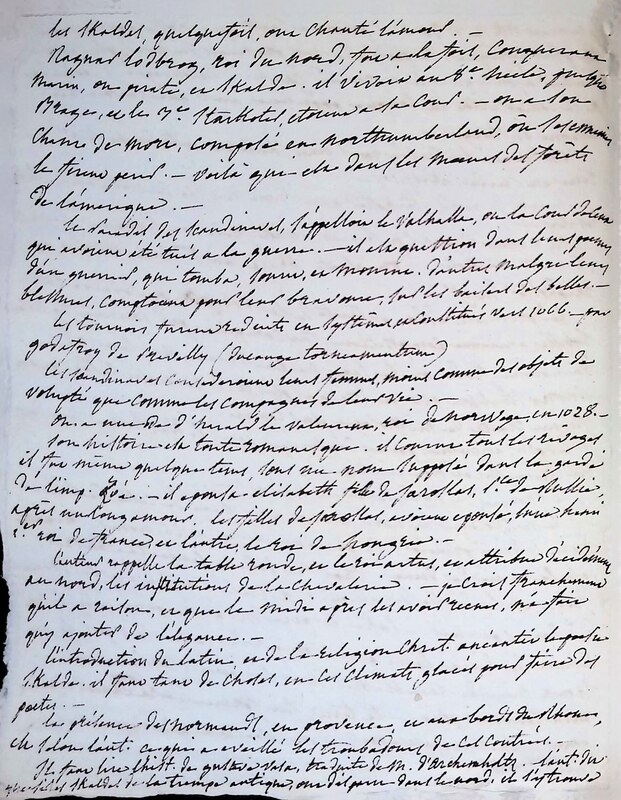 les skaldes, quelquefois, ont chanté l'amour. —
Ragnar Lodbrog, roi du nord, fut à la fois, conquerant
marin, ou pirate, et skalde. il vivoit au 8e siècle,
Brage, et le 3e Starkoter, étoient à sa cour. — on a son
chant de mort, composé en northumberland, où les ennemis
le firent périr. — voilà qui est dans les mœurs des forêts
de l'amérique. —
le Paradis des scandinaves, s'appelloit le Valhalla, ou la Cour de ceux
qui avoient été tués à la guerre. — il est question dans leurs poemes
d'un guerrier, qui tomba, sourit, et mourut. d'autres malgré leurs
blessures, comptoient, pour leur bravoure, sur les baisers des belles. —
les tournois furent redigés en système, et constitués vers 1066. — par
godefroy de Preuilly (ducange torneamentum)
les scandinaves consideroient leurs femmes, moins comme des objets de
volupté que comme les compagnes de leur vie. —
On a une ode d'harald le valeureux, roi de norvège, en 1028. —
son histoire est toute romanesque. il courut tous les rivages
il fut même quelque tems, sous un nom supposé dans la garde
de l'imp. Zoé. — il épousa elisabeth fille de jaroslas, de Russie,
après un long amour. les filles de jaroslas, avoient épousé, l'une henri
1er roi de france, et l'autre, le roi de hongrie. —
l'auteur rappelle la table ronde, et le roi artus, et attribue décidément
au nord, les institutions de la chevalerie. — je crois franchement
qu'il a raison, et que le midi après les avoir reçues, n'a fait
qu'y ajouter de l'élégance. —
l'introduction du latin, et de la religion Chret. anéantit la poésie
skalde. il faut tant de choses, en ces climats, glacés pour faire des
poetes. —
la présence des normands, en provence, et aux bords du rhone,
est selon l'aut. ce qui a éveillé les troubadours de ces contrées. —
Il faut lire l'hist. de gustave vasa, traduite de M. d'archenholtz. l'aut. du
les skaldes de la trempe antique, ont disparu dans le nord, il s'y trouve